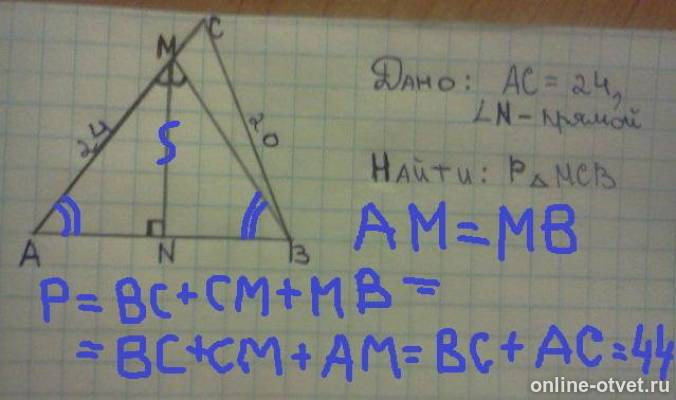 C
M
24
20
S
A
N
B
Дано: AC = 24,
∠N - прямой
Найти: P△MCB
AM = MB
P = BC + CM + MB =
= BC + CM + AM = BC + AC = 44
online-otvet.ru